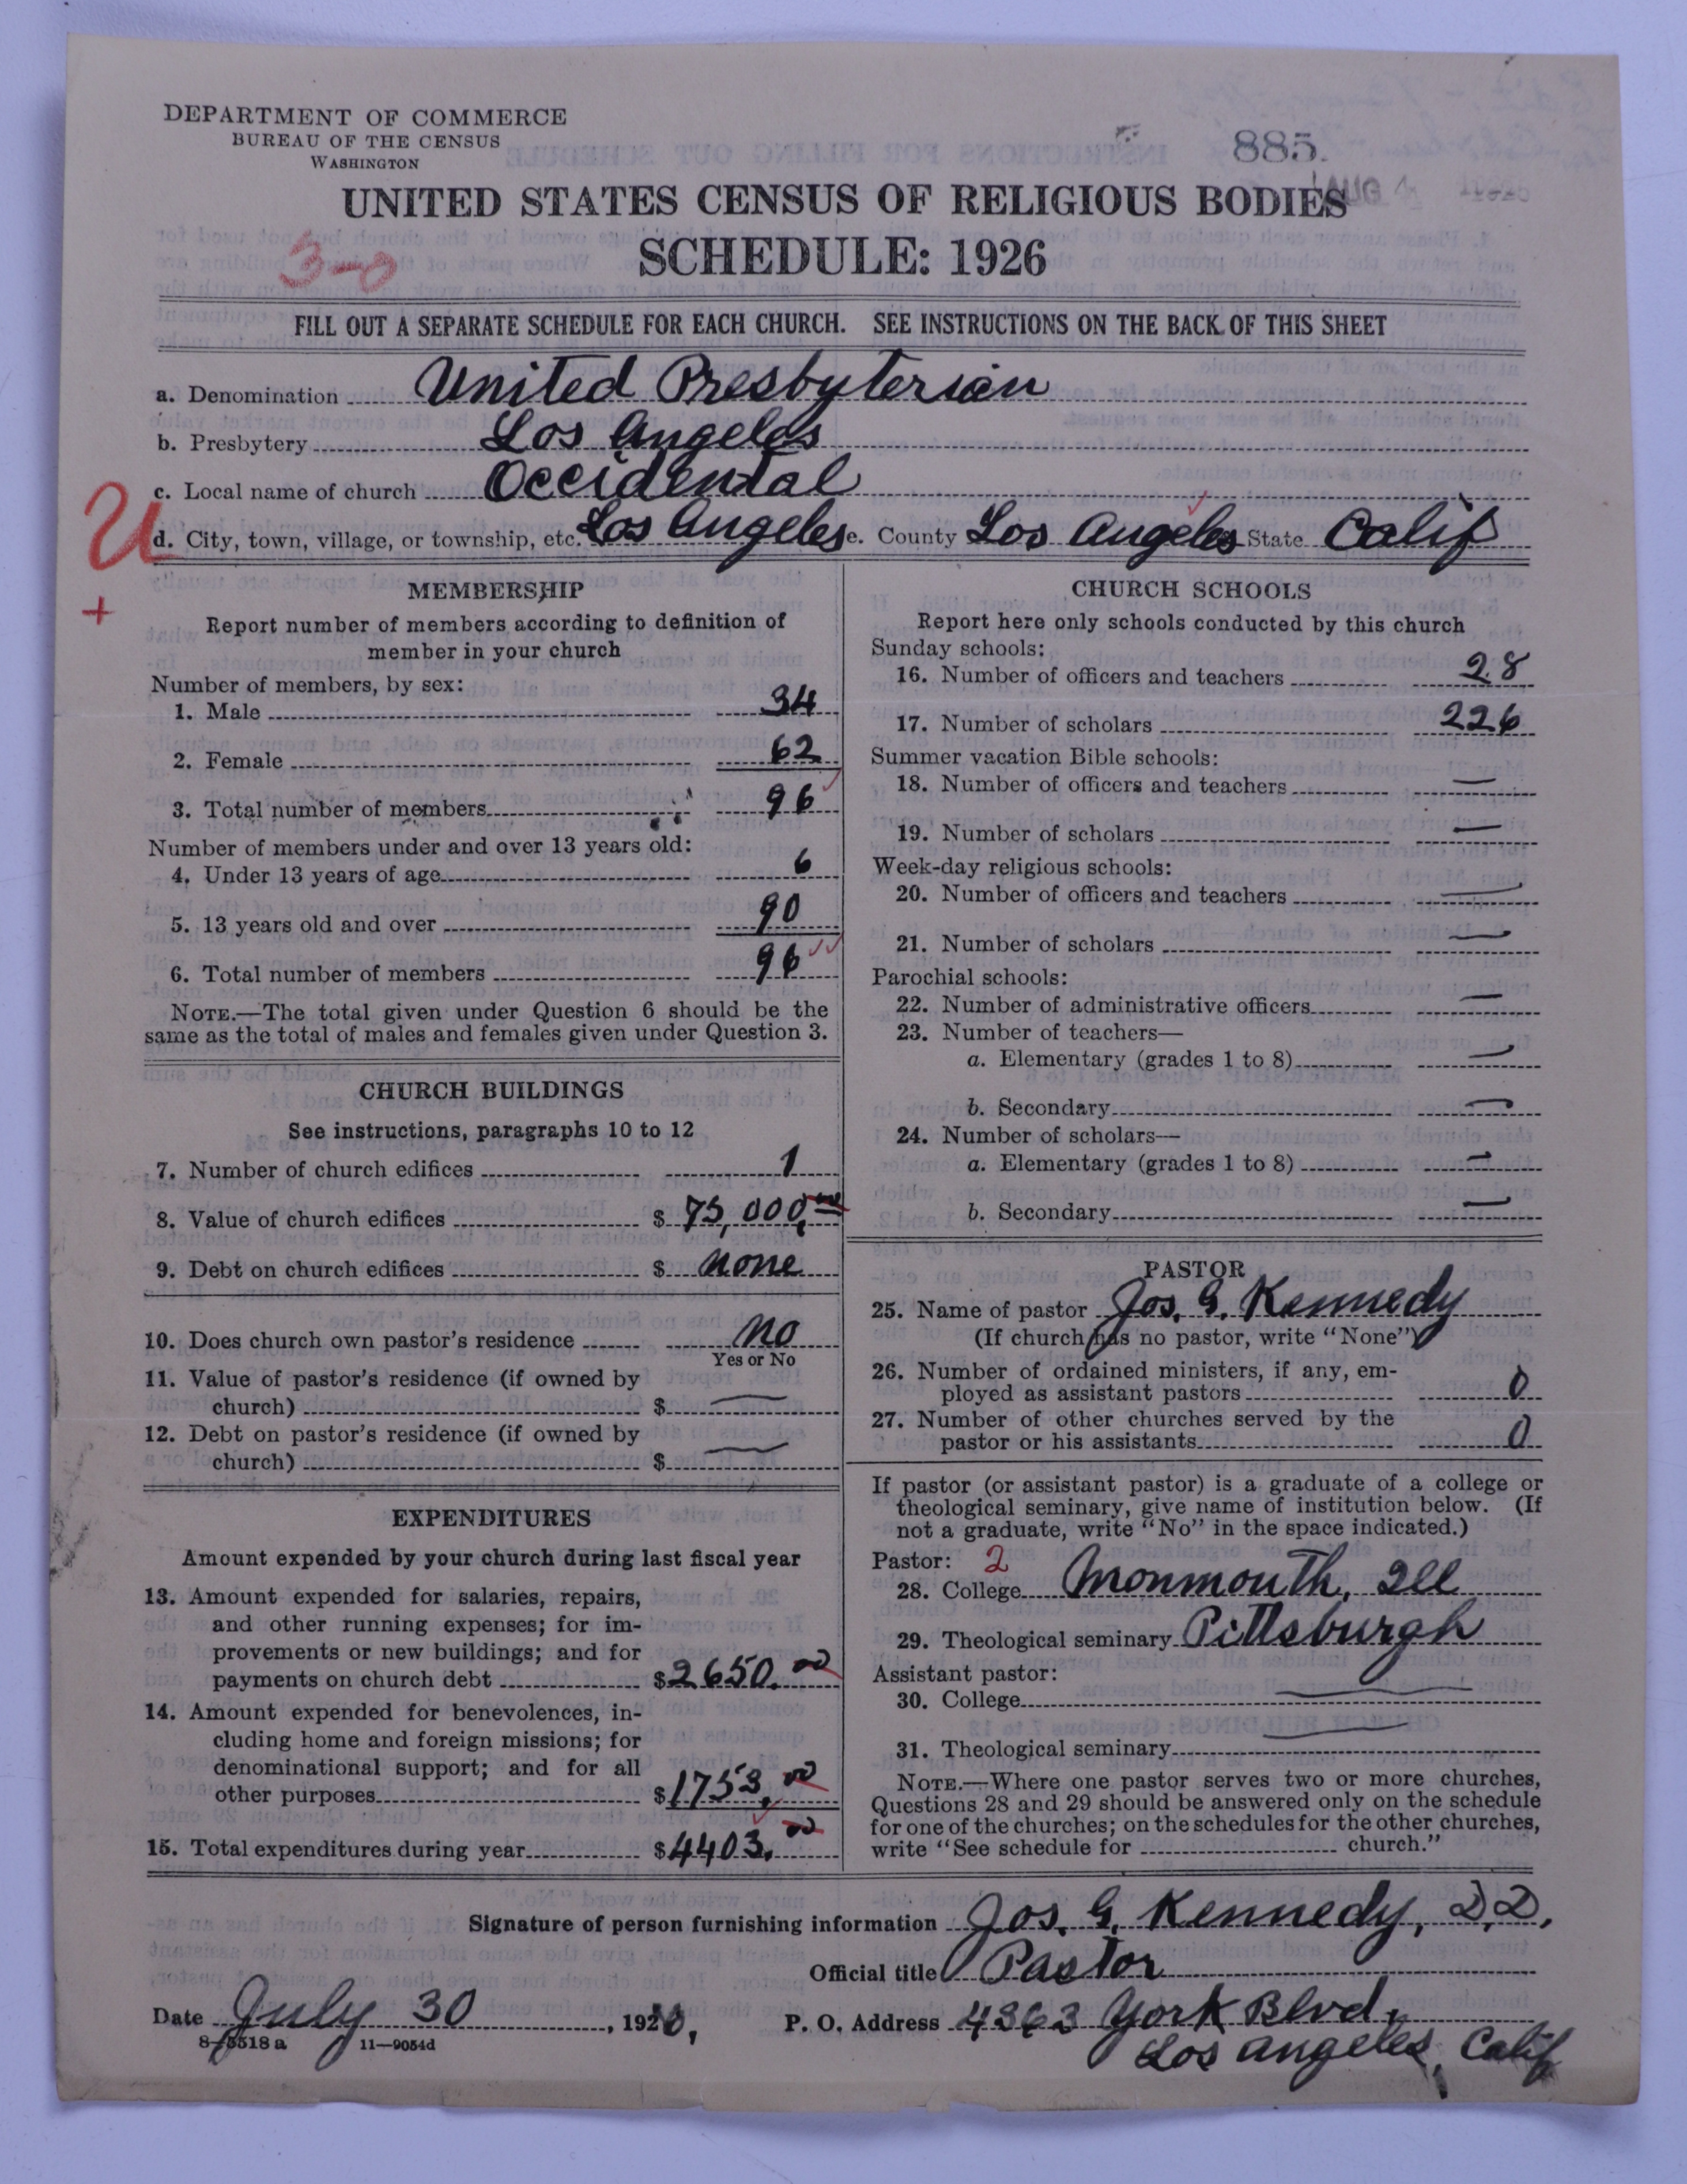 DEPARTMENT OF COMMERCE
BUREAU OF THE CENSUS
WASHINGTON
885.
AUG 4
UNITED STATES CENSUS OF RELIGIOUS BODIES
SCHEDULE: 1926
3-0
FILL OUT A SEPARATE SCHEDULE FOR EACH CHURCH. SEE INSTRUCTIONS ON THE BACK OF THIS SHEET
a. Denomination United Presbyterian
b. Presbytery Los Angeles
c. Local name of church Occidental
U
d. City, town, village, or township, etc. Los Angeles e. County Los Angeles State Calif
+
MEMBERSHIP
Report number of members according to definition of
member in your church
Number of members, by sex:
1. Male 34
2. Female 62
3. Total number of members 96
Number of members under and over 13 years old:
4. Under 13 years of age 6
5. 13 years old and over 90
6. Total number of members 96
NOTE.—The total given under Question 6 should be the
same as the total of males and females given under Question 3.
CHURCH BUILDINGS
See instructions, paragraphs 10 to 12
7. Number of church edifices 1
8. Value of church edifices $ 75,000.00
9. Debt on church edifices $ none
10. Does church own pastor's residence no
Yes or No
11. Value of pastor's residence (if owned by
church) $ —
12. Debt on pastor's residence (if owned by
church) $ —
EXPENDITURES
Amount expended by your church during last fiscal year
13. Amount expended for salaries, repairs,
and other running expenses; for im-
provements or new buildings; and for
payments on church debt $ 2650.00
14. Amount expended for benevolences, in-
cluding home and foreign missions; for
denominational support; and for all
other purposes $ 1753.00
15. Total expenditures during year $ 4403.00
CHURCH SCHOOLS
Report here only schools conducted by this church
Sunday schools:
16. Number of officers and teachers 28
17. Number of scholars 226
Summer vacation Bible schools:
18. Number of officers and teachers —
19. Number of scholars —
Week-day religious schools:
20. Number of officers and teachers —
21. Number of scholars —
Parochial schools:
22. Number of administrative officers —
23. Number of teachers—
a. Elementary (grades 1 to 8) —
b. Secondary —
24. Number of scholars—
a. Elementary (grades 1 to 8) —
b. Secondary —
PASTOR
25. Name of pastor Jos. G. Kennedy
(If church has no pastor, write "None")
26. Number of ordained ministers, if any, em-
ployed as assistant pastors 0
27. Number of other churches served by the
pastor or his assistants 0
If pastor (or assistant pastor) is a graduate of a college or
theological seminary, give name of institution below. (If
not a graduate, write "No" in the space indicated.)
Pastor: 2
28. College Monmouth, Ill
29. Theological seminary Pittsburgh
Assistant pastor:
30. College —
31. Theological seminary —
NOTE.—Where one pastor serves two or more churches,
Questions 28 and 29 should be answered only on the schedule
for one of the churches; on the schedules for the other churches,
write "See schedule for church."
Signature of person furnishing information Jos. G. Kennedy, D.D.
Official title Pastor
Date July 30, 192
P. O. Address 4363 York Blvd.
Los Angeles, Calif
8-5518 a 11—9054d